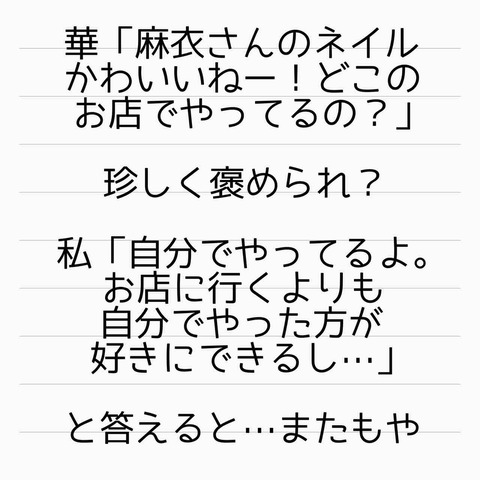 華「麻衣さんのネイル
かわいいねー！どこの
お店でやってるの？」
珍しく褒められ？
私「自分でやってるよ。
お店に行くよりも
自分でやった方が
好きにできるし…」
と答えると…またもや